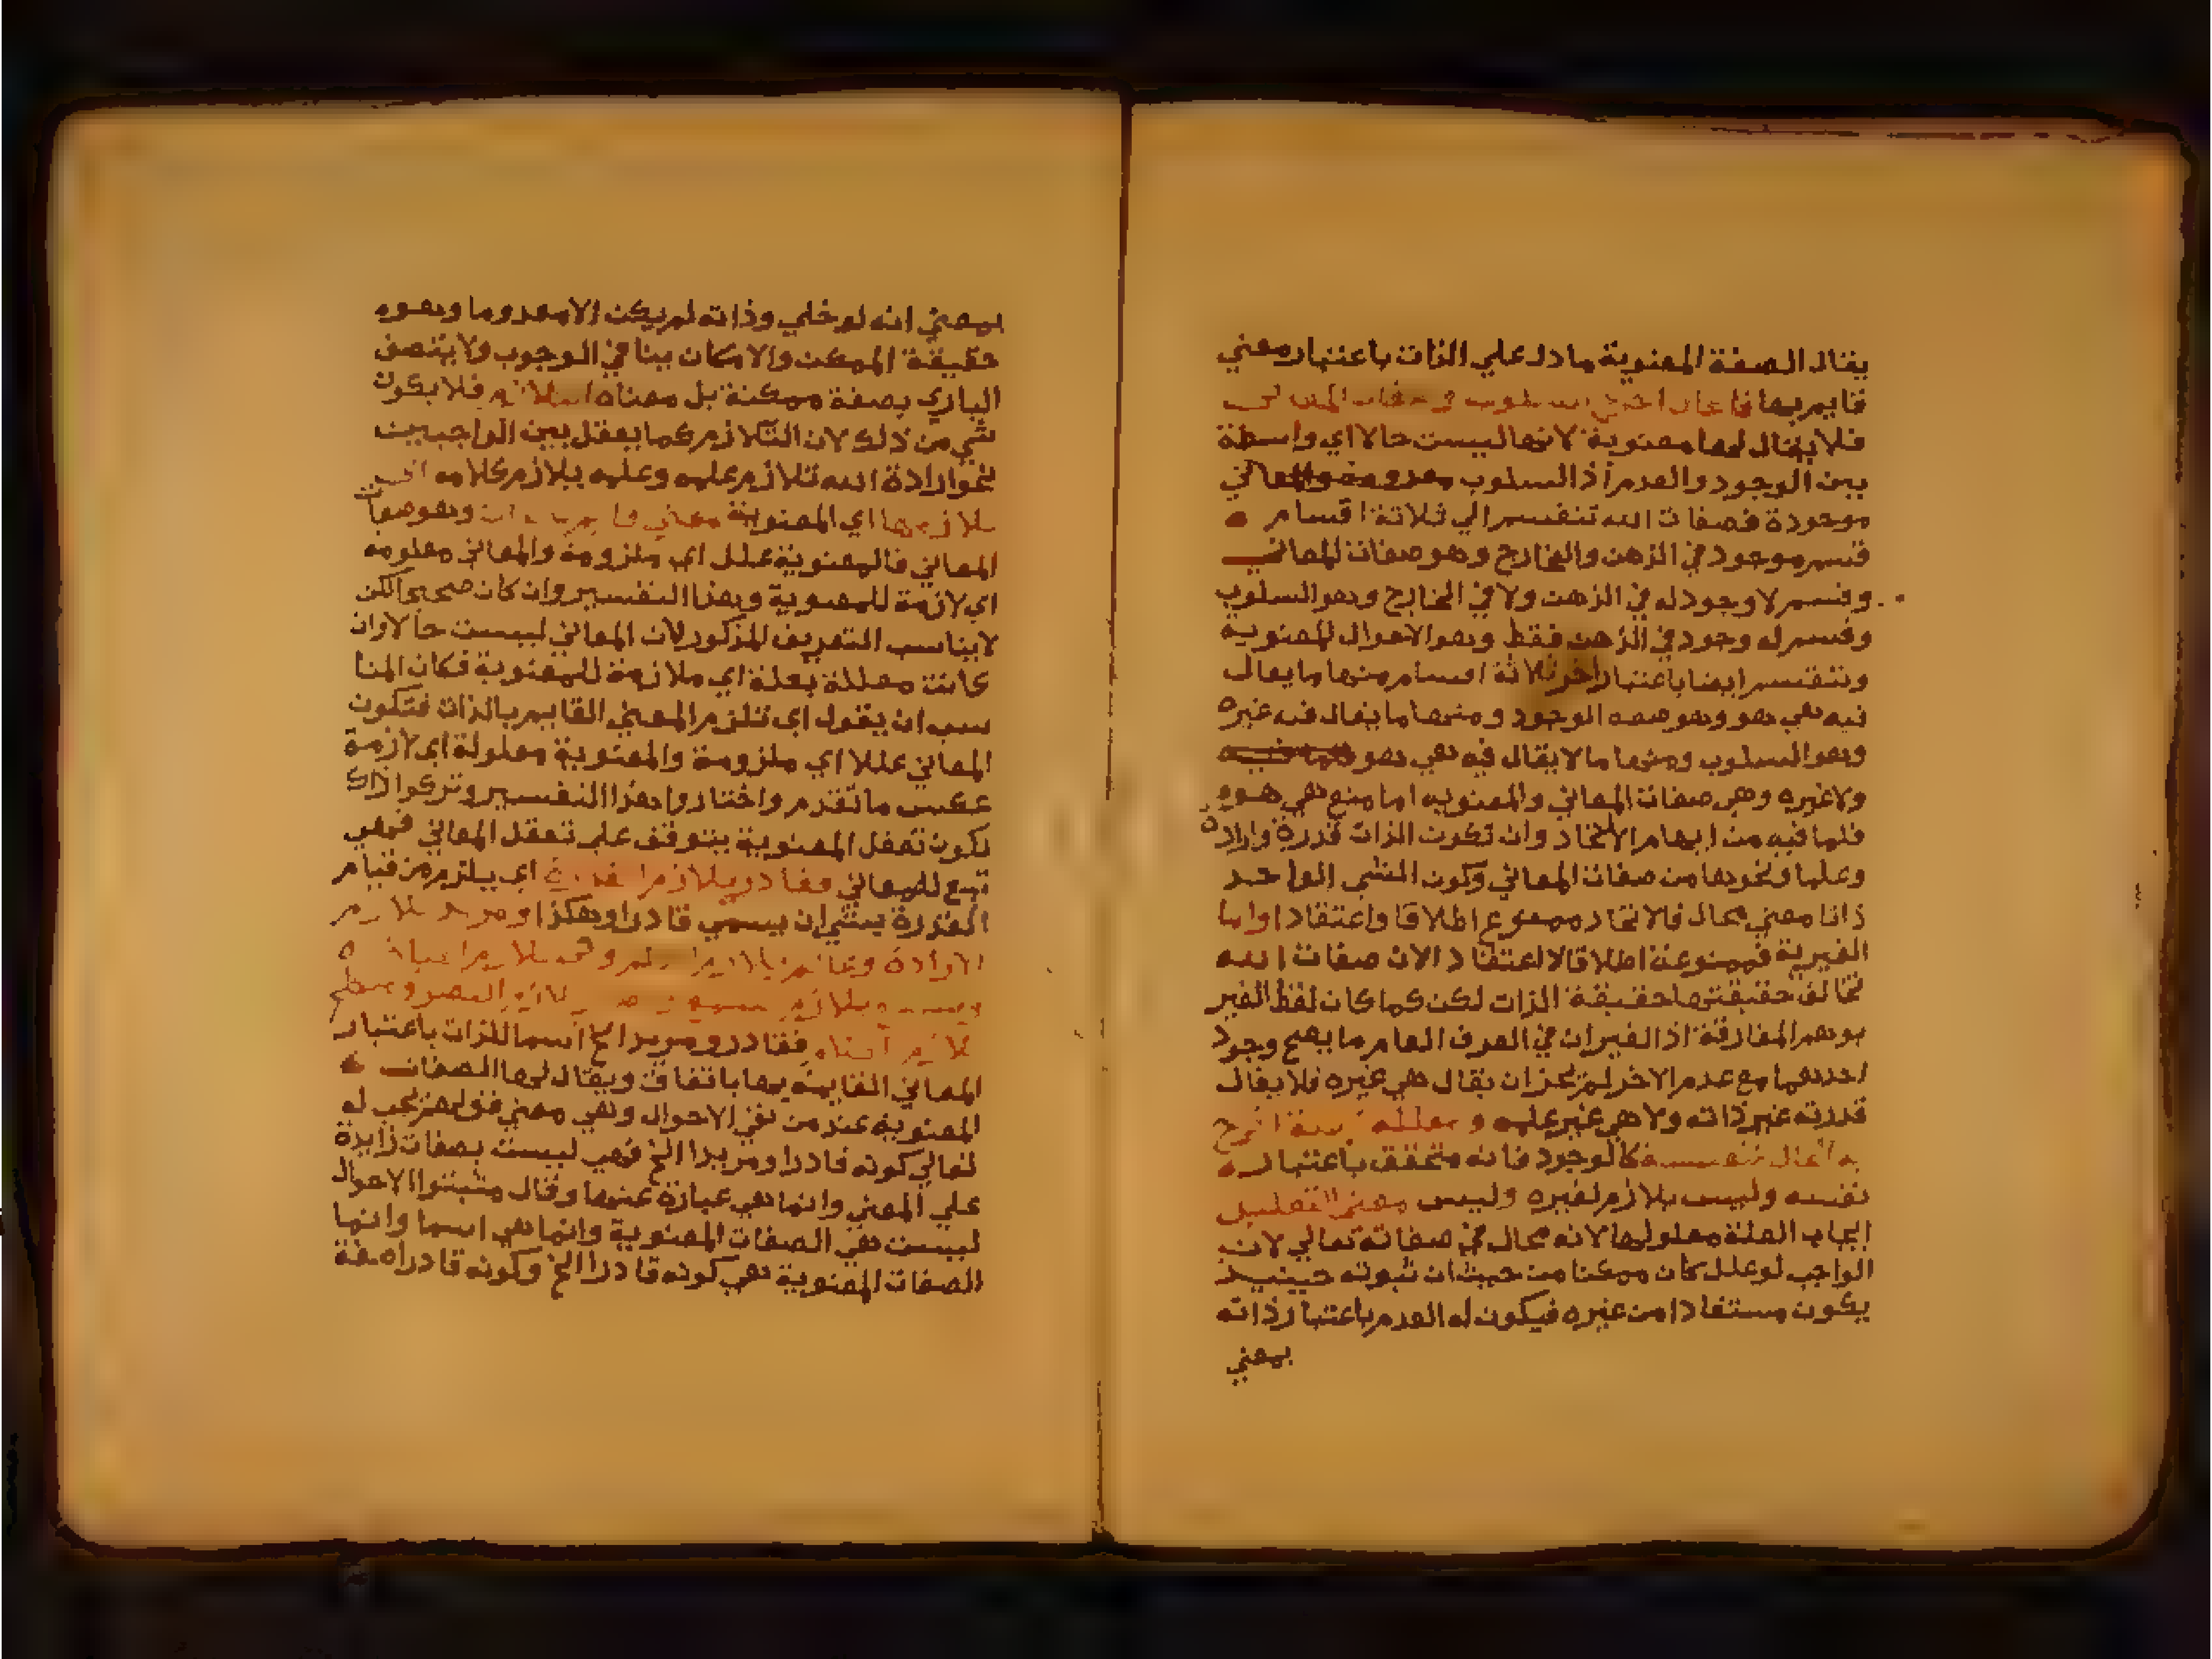 يقال الصفة المعنوية ما دل علي الذات باعتبار معني
قايم بها فالحال اخرج السلوب وصفات المعاني
فلا يقال لها معنوية لانها ليست حالا اي واسطة
بين الوجود والعدم اذ السلوب معدومة والمعاني
موجودة فصفات الله تنقسم الي ثلاثة اقسام
قسم موجود في الذهن والخارج وهو صفات المعاني
وقسم لا وجود له في الذهن ولا في الخارج وهو السلوب
وقسم له وجود في الذهن فقط وهو الاحوال المعنوية
وتنقسم ايضا باعتبار اخر ثلاثة اقسام منها ما يقال
فيه هي هو وهو صفة الوجود ومنها ما يقال فيه غيره
وهو السلوب ومنها ما لا يقال فيه هي هو
ولا غيره وهي صفات المعاني والمعنويه اما منع هي هو
فلما فيه من ايهام الاتحاد وان تكون الذات قدرة وارادة
وعلما ونحوها من صفات المعاني وكون الشي الواحد
ذاتا معني محال فالاتحاد ممنوع اطلاقا واعتقادا واما
الغيرية فممنوعة اطلاقا لا اعتقادا لان صفات الله
تخالف حقيقتها حقيقة الذات لكن كما كان لفظ الغير
يوهم المفارقة اذ الغيران في العرف العام ما يصح وجود
احدهما مع عدم الاخر لم يجز ان يقال هي غيره فلا يقال
قدرته غير ذاته ولا هي غير علمه و معللة
كالوجود فانه متحقق باعتبار
نفسه وليس بلازم لغيره وليس معني التعليل
ايجاب العلة معلولها لانه محال في صفاته تعالي لان
الواجب لو علل كان ممكنا من حيث ان ثبوته حينيذ
يكون مستفادا من غيره فيكون له العدم باعتبار ذاته
بمعني
بمعني انه لو خلي وذاته لم يكن الا معدوما وهو
حقيقة الممكن والامكان ينافي الوجوب ولا يتصف
الباري بصفة ممكنة بل معناه التلازم فلا يكون
شي من ذلك لان التلازم كما يعقل بين الواجبين
نحو ارادة الله تلازم علمه وعلمه يلازم كلامه
تلازمها اي المعنوية معاني وهو صفات
المعاني فالمعنوية علل اي ملزومة والمعاني معلومه
اي لازمة للمعنوية وهذا التفسير وان كان صحيحا لكن
لا يناسب التعريف المذكور لان المعاني ليست حالا وان
كانت معللة بعلة اي ملازمة للمعنوية فكان المنا
سب ان يقول اي تلزم المعني القايم بالذات فتكون
المعاني عللا اي ملزومة والمعنوية معلولة اي لازمة
عكس ما تقدم واختاروا هذا التفسير وتركوا ذاك
لكون تعقل المعنوية يتوقف علي تعقل المعاني فهي
تبع للمعاني فقادر يلازم القدرة اي يلزم من قيام
القدرة بشي ان يسمي قادرا وهكذا ومريد يلازم
الارادة وعالم يلازم العلم وحي يلازم الحياة
يلازم البصر ومتكلم
يلازم الكلام فقادر ومريد الخ اسما للذات باعتبار
المعاني القايمة بها باتفاق ويقال لها الصفات
المعنوية عند من نفي الاحوال وهي معني قولهم يجب له
تعالي كونه قادرا ومريدا الخ فهي ليست بصفات زايدة
علي المعني وانما هي عبارة عنها وقال مثبتوا الاحوال
ليست هي الصفات المعنوية وانما هي اسما وانما
الصفات المعنوية هي كونه قادرا الخ وكونه قادرا صفة